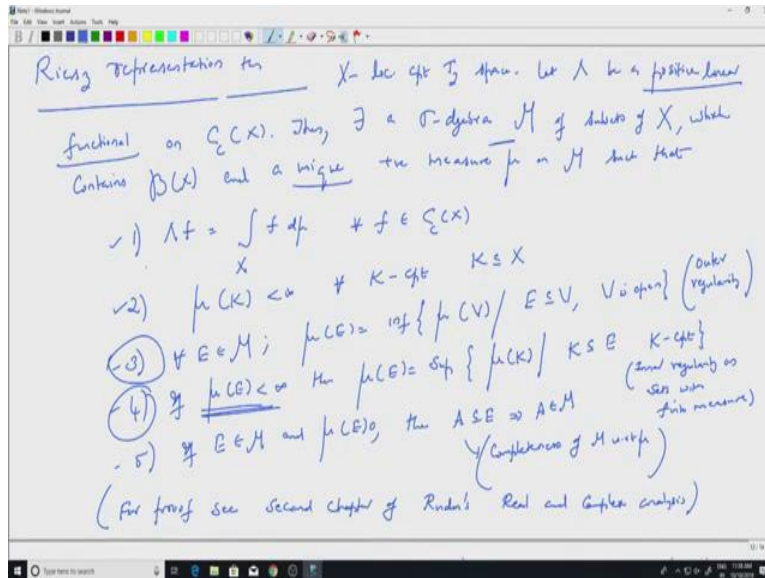 Note1 - Windows Journal
File Edit View Insert Actions Tools Help
Riesz representation thm X- loc cpt T2 space. Let Λ be a positive linear
functional on Cc(X). Then, ∃ a σ-algebra M of subsets of X, which
contains B(X) and a unique +ve measure μ on M such that
1) Λf = ∫_X f dμ ∀ f ∈ Cc(X)
2) μ(K) < ∞ ∀ K-cpt K ⊆ X
3) ∀ E ∈ M; μ(E) = inf { μ(V) / E ⊆ V, V is open } (Outer regularity)
4) If μ(E) < ∞ then μ(E) = Sup { μ(K) / K ⊆ E K-cpt }
(Inner regularity on sets with finite measure)
5) If E ∈ M and μ(E)0, then A ⊆ E ⇒ A ∈ M
(Completeness of M w.r.t μ)
(For proof see Second Chapter of Rudin's Real and Complex analysis)
Type here to search